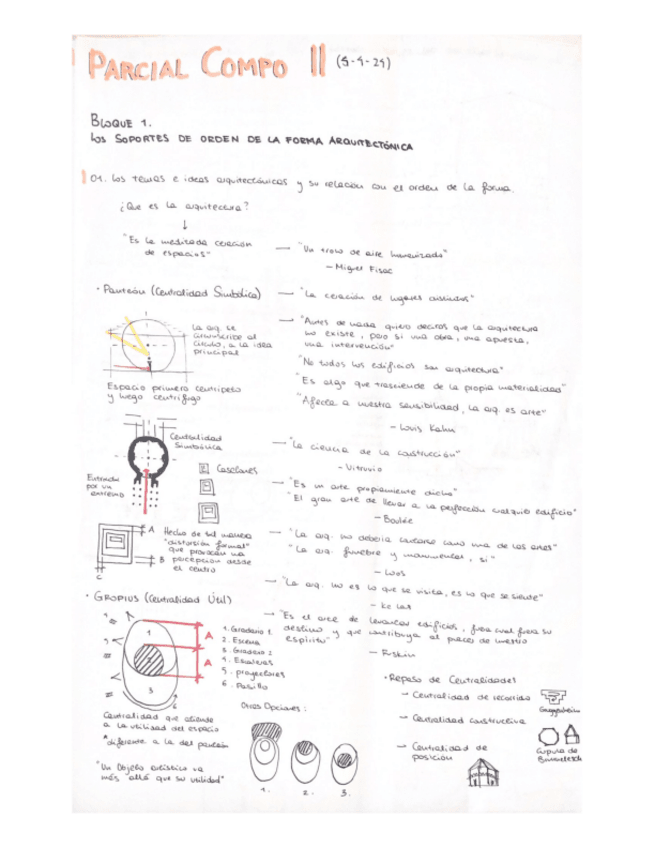 PARCIAL COMPO II (5-4-24)
BLOQUE 1.
LOS SOPORTES DE ORDEN DE LA FORMA ARQUITECTÓNICA
01. Los temas e ideas arquitectónicas y su relación con el orden de la forma.
¿Que es la arquitectura?
"Es la meditada creación
de espacios"
— "Un trozo de aire humanizado"
– Miguel Fisac
· Panteón (Centralidad Simbólica)
— "La creación de lugares distintos"
La arq. se
circunscribe al
círculo, a la idea
principal
Espacio primero centrípeto
y luego centrífugo
→ "Antes de nada quiero deciros que la arquitectura
no existe, pero si una obra, una apuesta,
una intervención"
"No todos los edificios son arquitectura"
"Es algo que trasciende de la propia materialidad"
"Afecta a nuestra sensibilidad, la arq. es arte"
– Louis Kahn
Centralidad
Simbólica
Entrada
por un
extremo
Casetones
→ "La ciencia de la construcción"
– Vitruvio
→ "Es un arte propiamente dicho"
"El gran arte de llevar a la perfección cualquier edificio"
– Boulée
A
B
C
Hecho de tal manera
"distorsión formal"
que provocan una
percepción desde
el centro
→ "La arq. no debería tratarse como una de las artes"
"La arq. fúnebre y monumental, si"
– Loos
→ "La arq. no es lo que se visita, es lo que se siente"
→ "Es el arte de levantar edificios, fuera cual fuera su
destino y que contribuya al placer de nuestro
espíritu"
– Ruskin
· GROPIUS (Centralidad Útil)
1
2
3
A
A
1. Graderío 1
2. Escena
3. Graderío 2
4. Escaleras
5. proyectores
6. Pasillo
Centralidad que atiende
a la utilidad del espacio
diferente a la del panteón
"Un Objeto artístico va
más allá que su utilidad"
Otras Opciones:
1.
2.
3.
· Repaso de Centralidades
→ Centralidad de recorrido
Guggenheim
→ Centralidad constructiva
Cúpula de
Brunelleschi
→ Centralidad de
posición